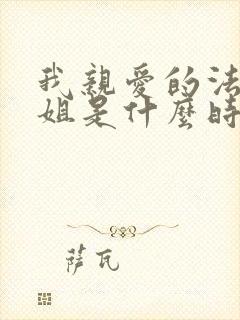 我親愛的法
姐是什麼時
薩瓦